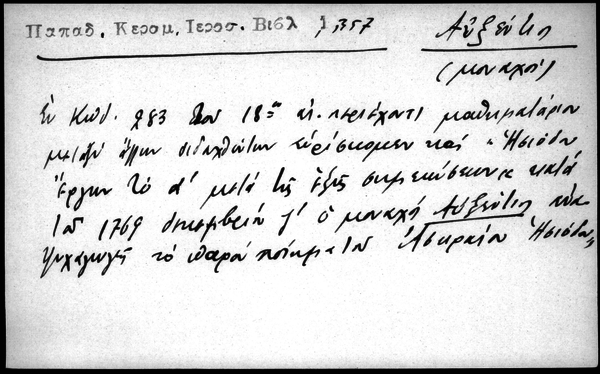 Παπαδ. Κεραμ. Ιεροσ. Βιβλ 1,357
Αὐξεντιο
(μοναχοῦ)
Ἐν Κωδ. 283 τοῦ 18ου αἰ. περιέχοντι μαθηματάριον
μεταξὺ ἄλλων εὑρίσκομεν καὶ «Ἡσιόδου
Ἔργων τὸ α' μετὰ τῆς ἑξῆς σημειώσεως κατὰ
τοῦ 1769 γ' ὁ μοναχὸς Αὐξέντιος
τὸ παρὸν ποίημα τοῦ Ἀσκραίου Ἡσιόδου»